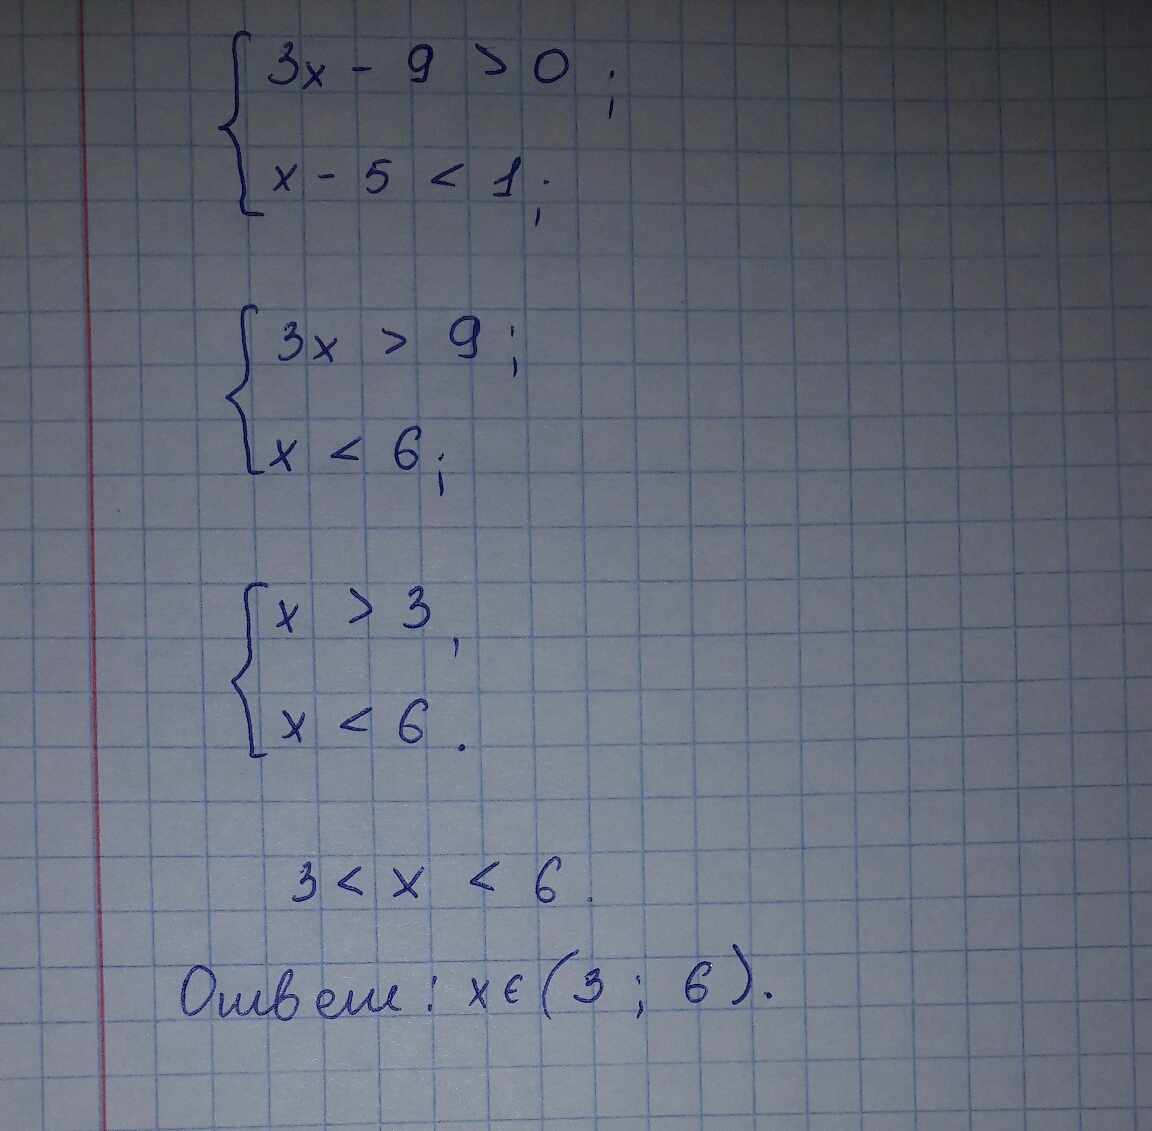 3x - 9 > 0;
x - 5 < 1;
3x > 9;
x < 6;
x > 3,
x < 6.
3 < x < 6.
Ответ: x ∈ (3 ; 6).